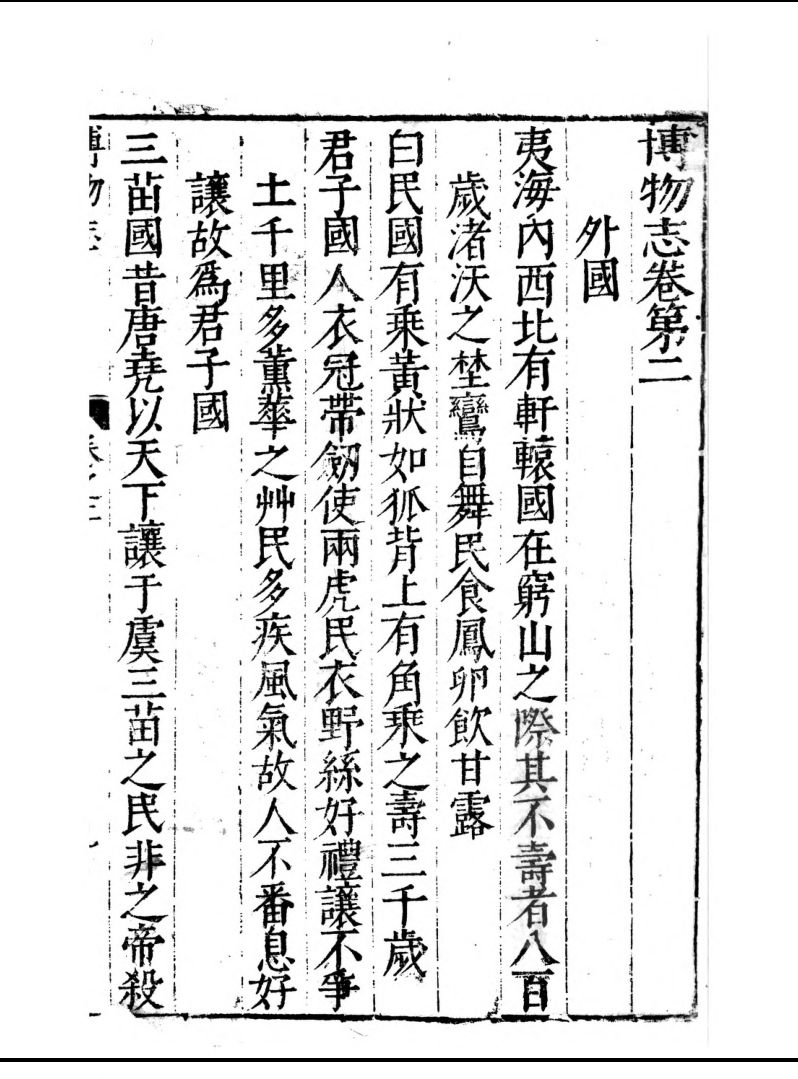 博物志卷第二
外國
夷海內西北有軒轅國在窮山之際其不壽者八百
歲渚沃之埜鸞自舞民食鳳卵飲甘露
白民國有乘黃狀如狐背上有角乘之壽三千歲
君子國人衣冠帶劒使兩虎民衣野絲好禮讓不爭
土千里多薰華之艸民多疾風氣故人不番息好
讓故爲君子國
三苗國昔唐堯以天下讓于虞三苗之民非之帝殺
博物志